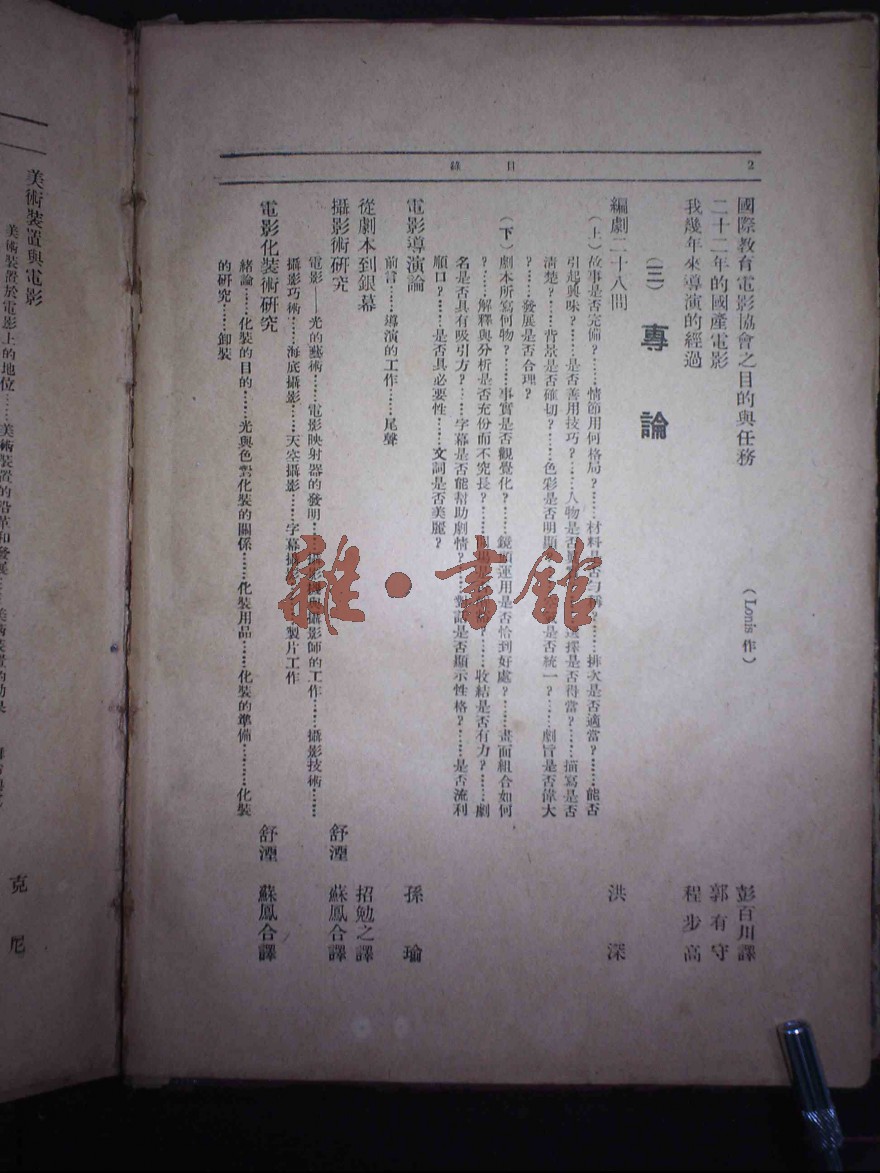 目錄
2
國際教育電影協會之目的與任務（Lonis 作） 彭百川譯
二十二年的國產電影 郭有守
我幾年來導演的經過 程步高
（三）專論
編劇二十八問 洪深
（上）故事是否完備？……情節用何格局？……材料是否勻稱？……排次是否適當？……能否
引起興味？……是否善用技巧？……人物是否 選擇是否得當？……描寫是否
清楚？……背景是否確切？……色彩是否明顯 是否統一？……劇旨是否偉大
？……發展是否合理？
（下）劇本所寫何物？……事實是否觀覺化？……鏡頭運用是否恰到好處？……畫面組合如何
？……解釋與分析是否充份而不冗長？…… ……收結是否有力？……劇
名是否具有吸引方？……字幕是否能幫助劇情？……對話是否顯示性格？……是否流利
順口？……是否具必要性……文詞是否美麗？
電影導演論 孫瑜
前言……導演的工作……尾聲
從劇本到銀幕 招勉之譯
攝影術研究 舒湮 蘇鳳合譯
電影——光的藝術……電影映射器的發明……攝影機與攝影師的工作……攝影技術……
攝影巧術……海底攝影……天空攝影……字幕攝 製片工作
電影化裝術研究 舒湮 蘇鳳合譯
緒論……化裝的目的……光與色對化裝的關係……化裝用品……化裝的準備……化裝
的研究……卸裝
美術裝置與電影 克尼
美術裝置於電影上的地位……美術裝置的沿革和發展……美術裝置的効果
雜·書館